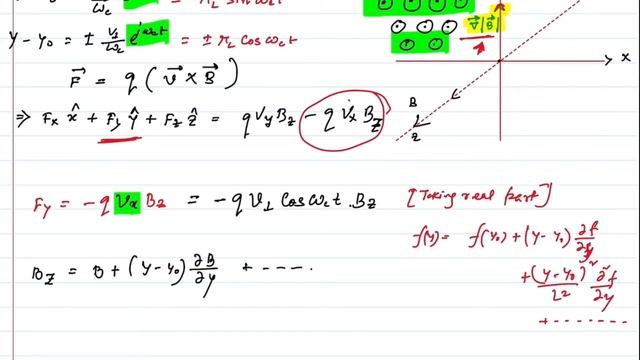 ω_c = r_L sin ω_c t
y - y_0 = ± v_⊥/ω_c e^{iω_c t} = ± r_L cos ω_c t
F⃗ = q ( v⃗ × B⃗ )
⇒ F_x x̂ + F_y ŷ + F_z ẑ = q v_y B_z - q v_x B_z
∇⃗|B⃗|
x
B
z
F_y = - q v_x B_z = - q v_⊥ cos ω_c t . B_z
[Taking real part]
f(y) = f(y_0) + (y - y_0) ∂f/∂y
+ (y - y_0)²/L2 ∂²f/∂y
+ -------
B_z = B + (y - y_0) ∂B/∂y + ----.